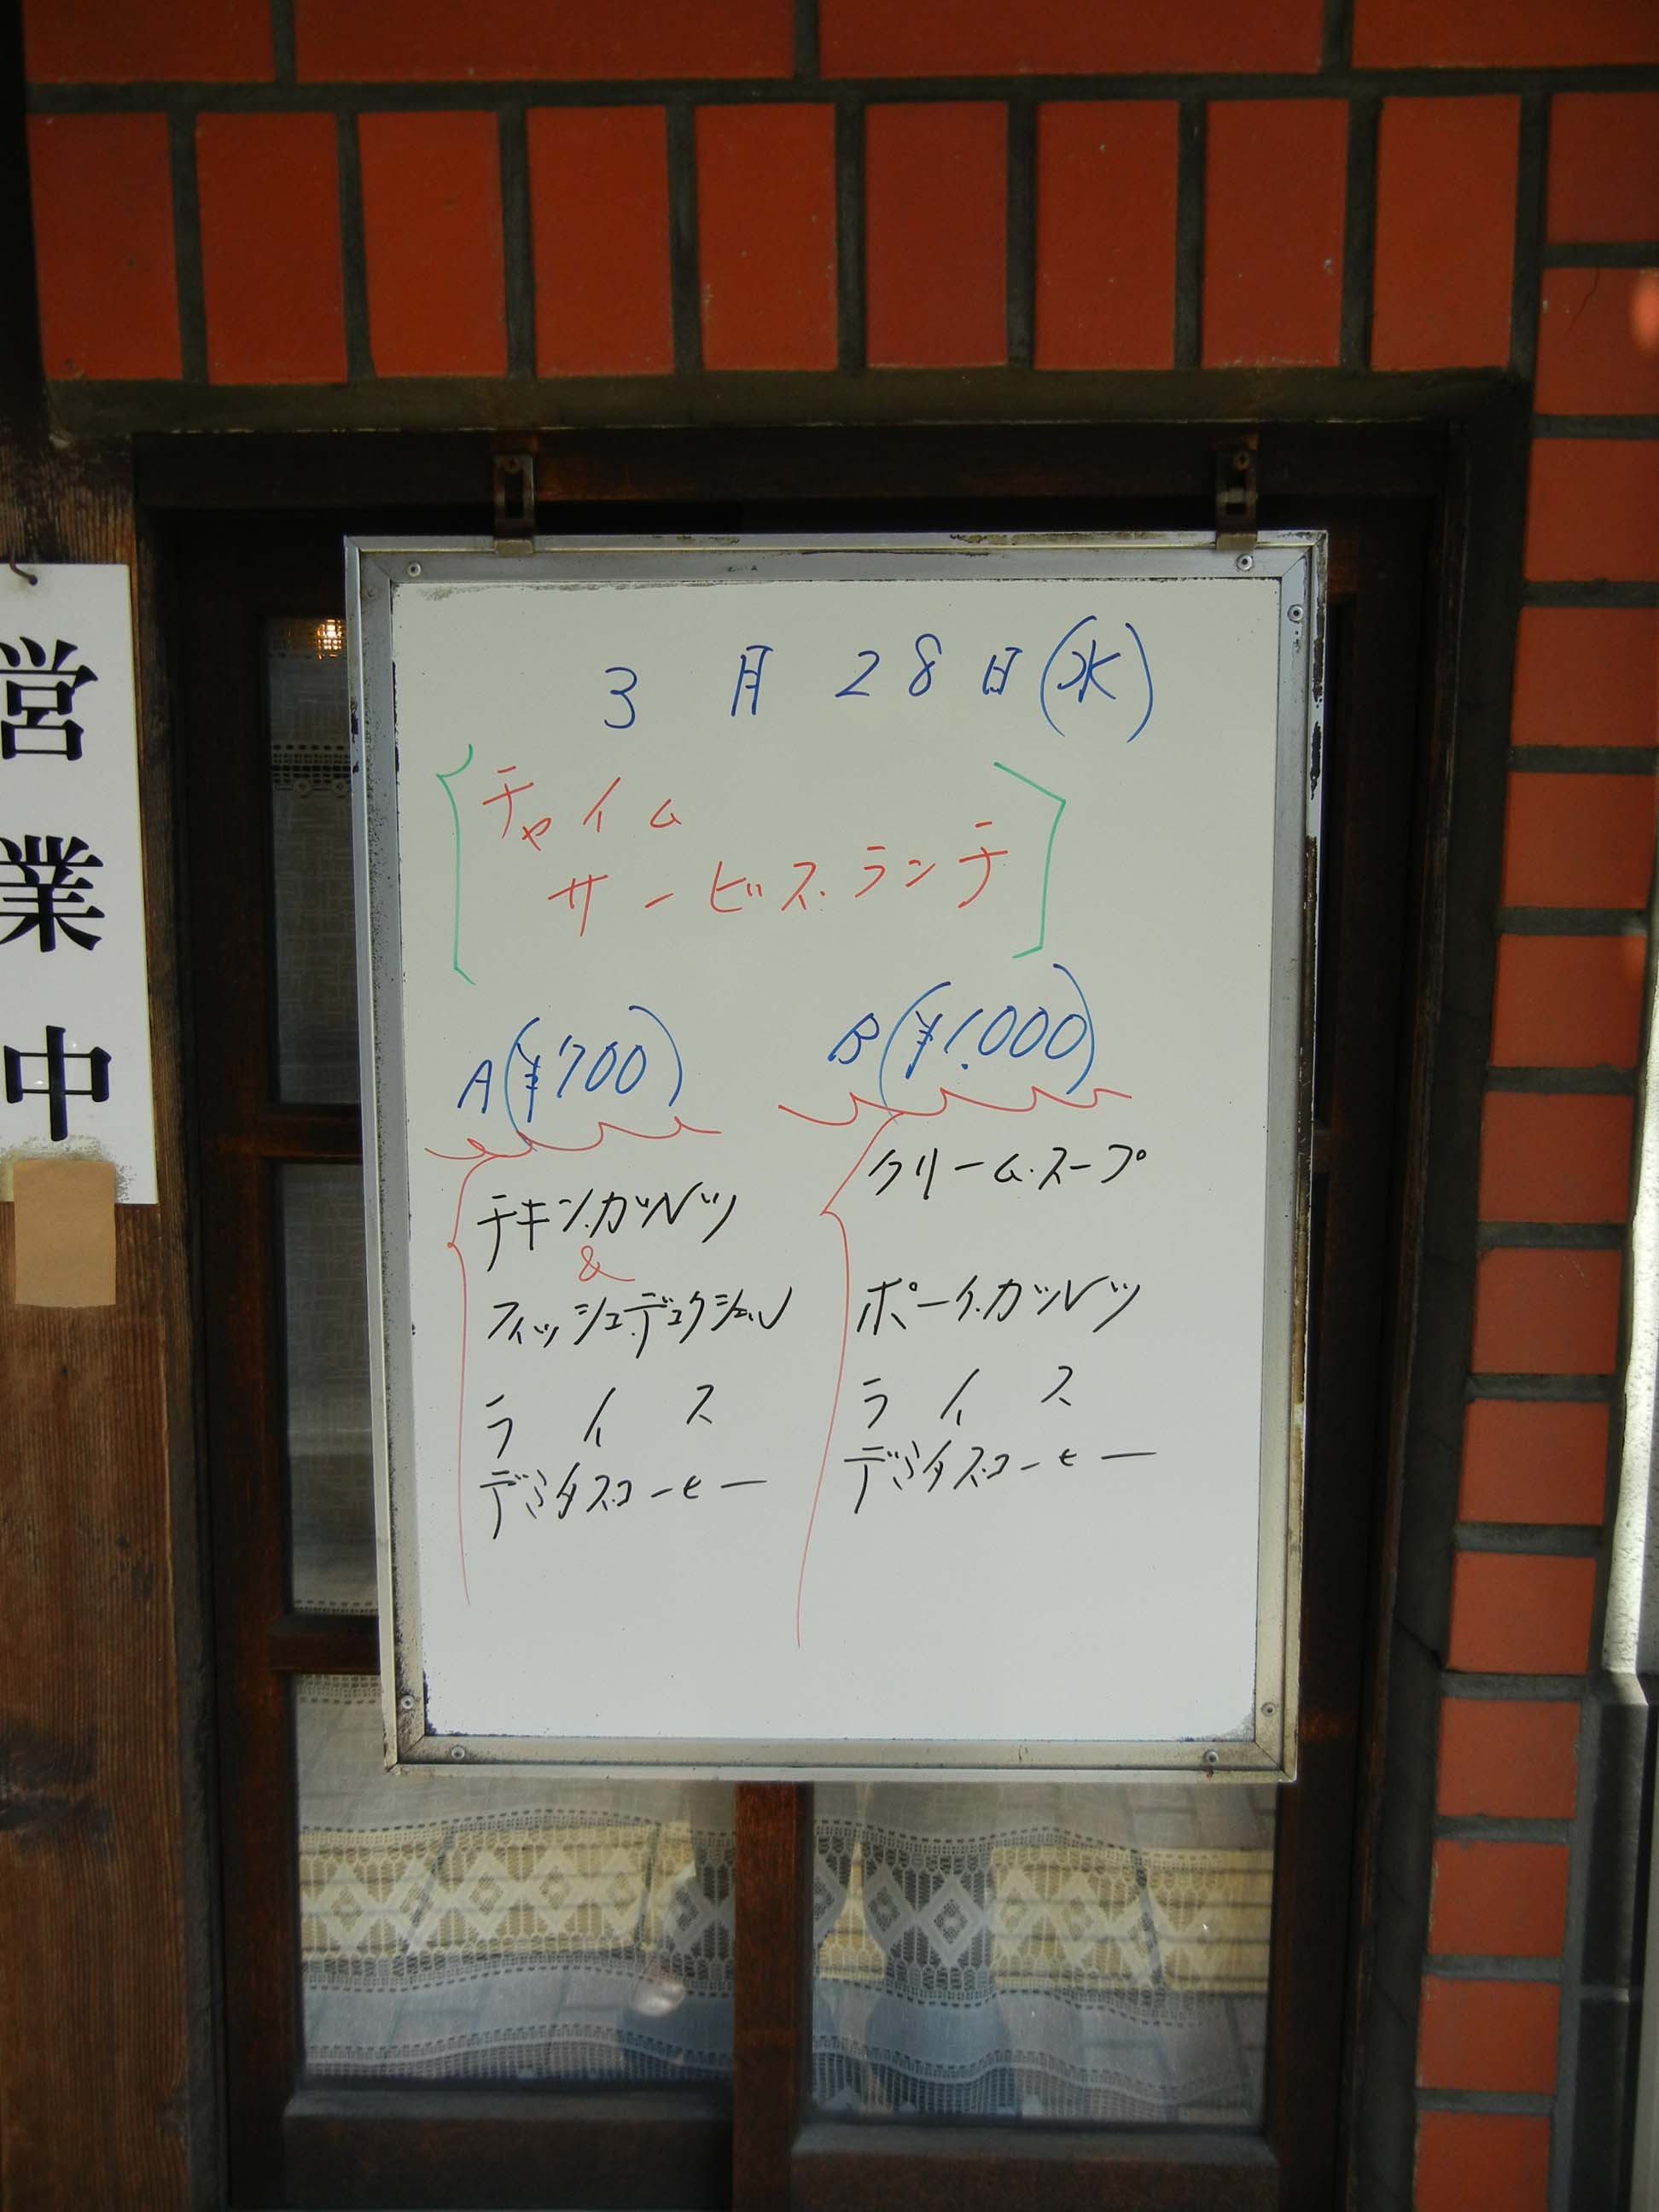 営業中
3月28日(水)
チャイム
サービス.ランチ
A(¥700)
チキン.カツレツ
&
フィッシュ.デュクシェル
ライス
デミタス.コーヒー
B(¥1.000)
クリーム.スープ
ポーク.カツレツ
ライス
デミタス.コーヒー